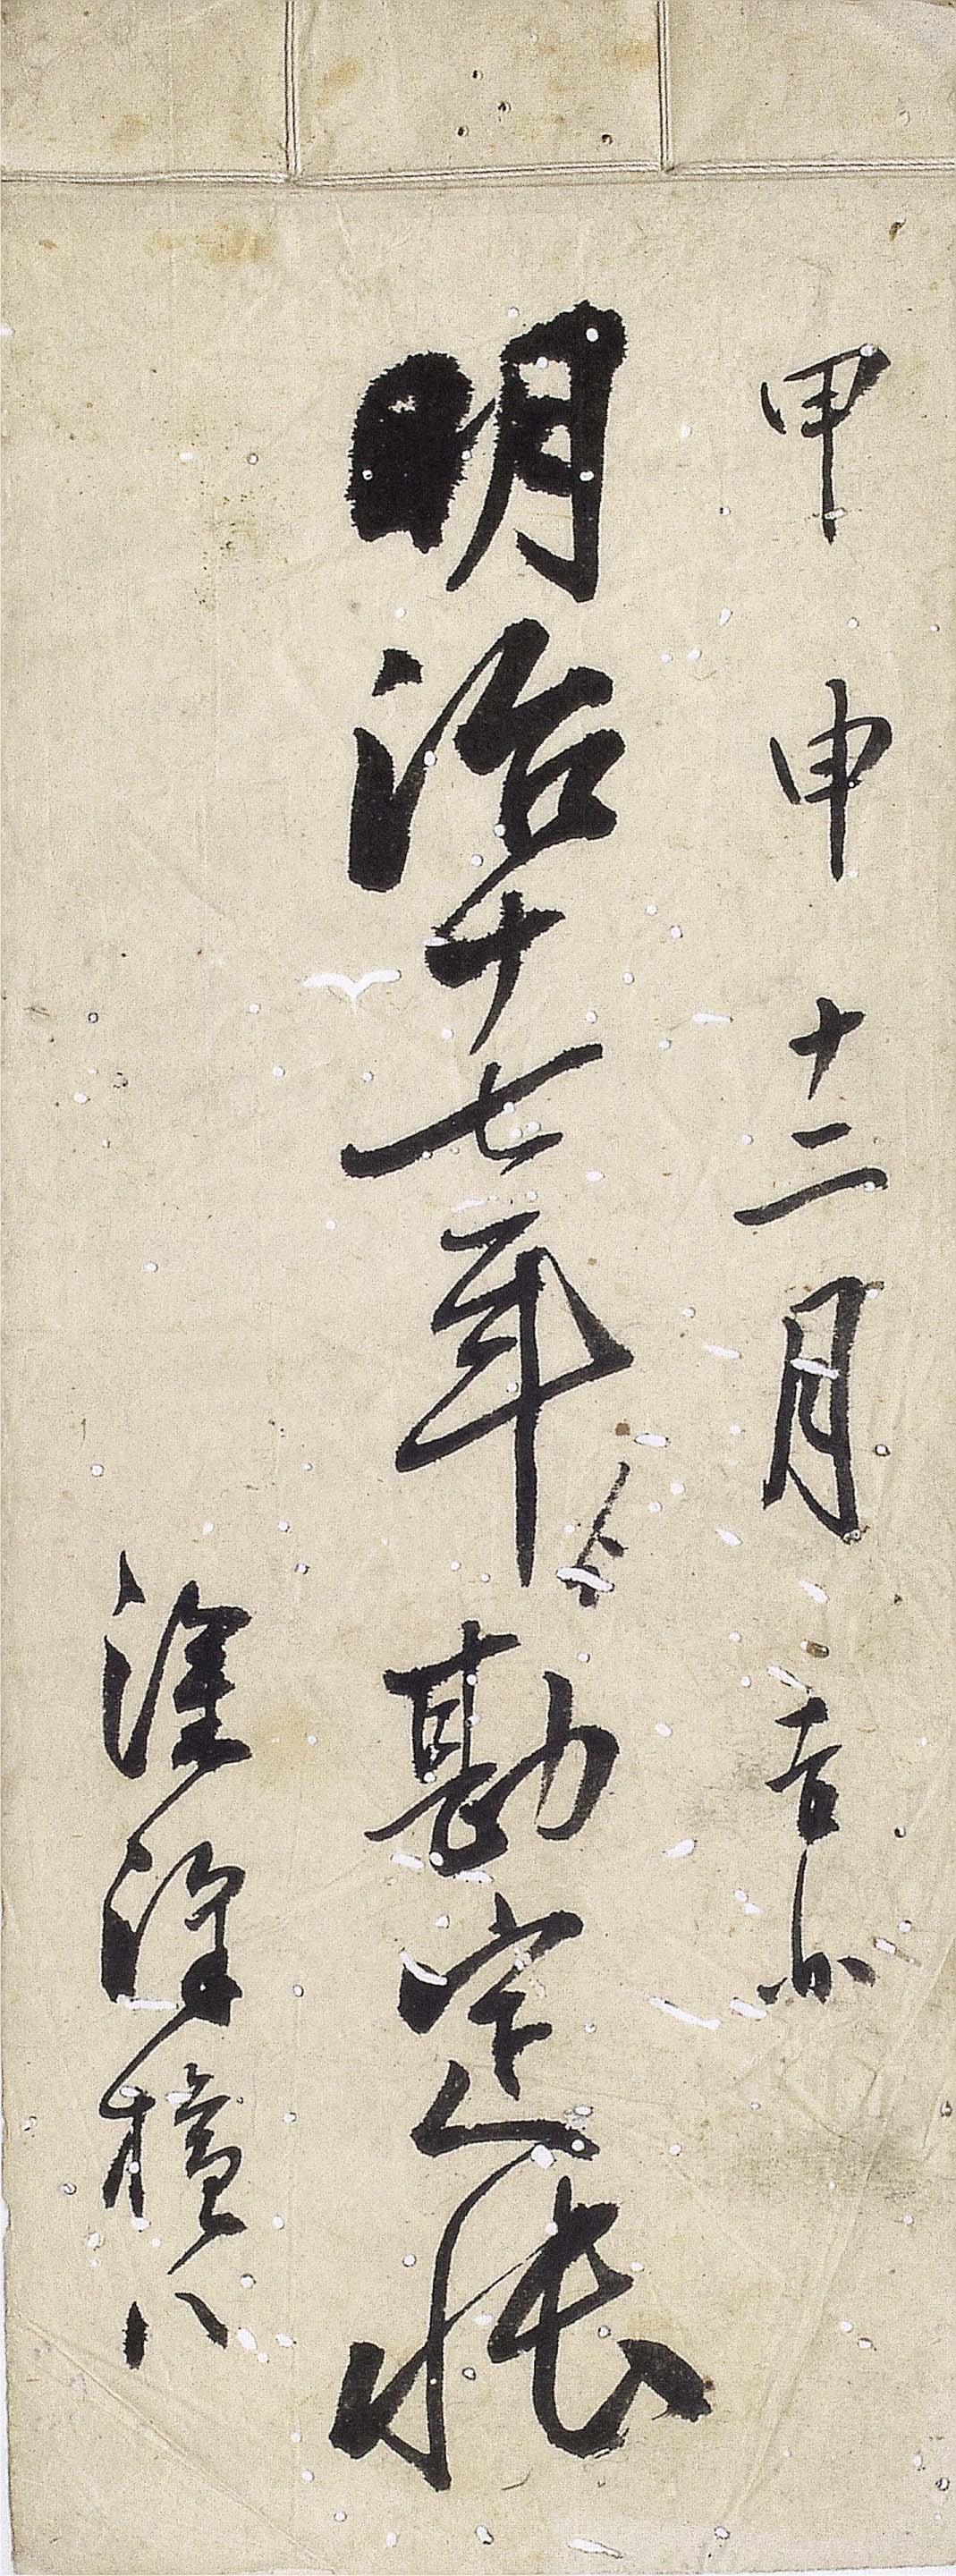 甲申十二月吉日
明治十七年勘定帳
深澤権八